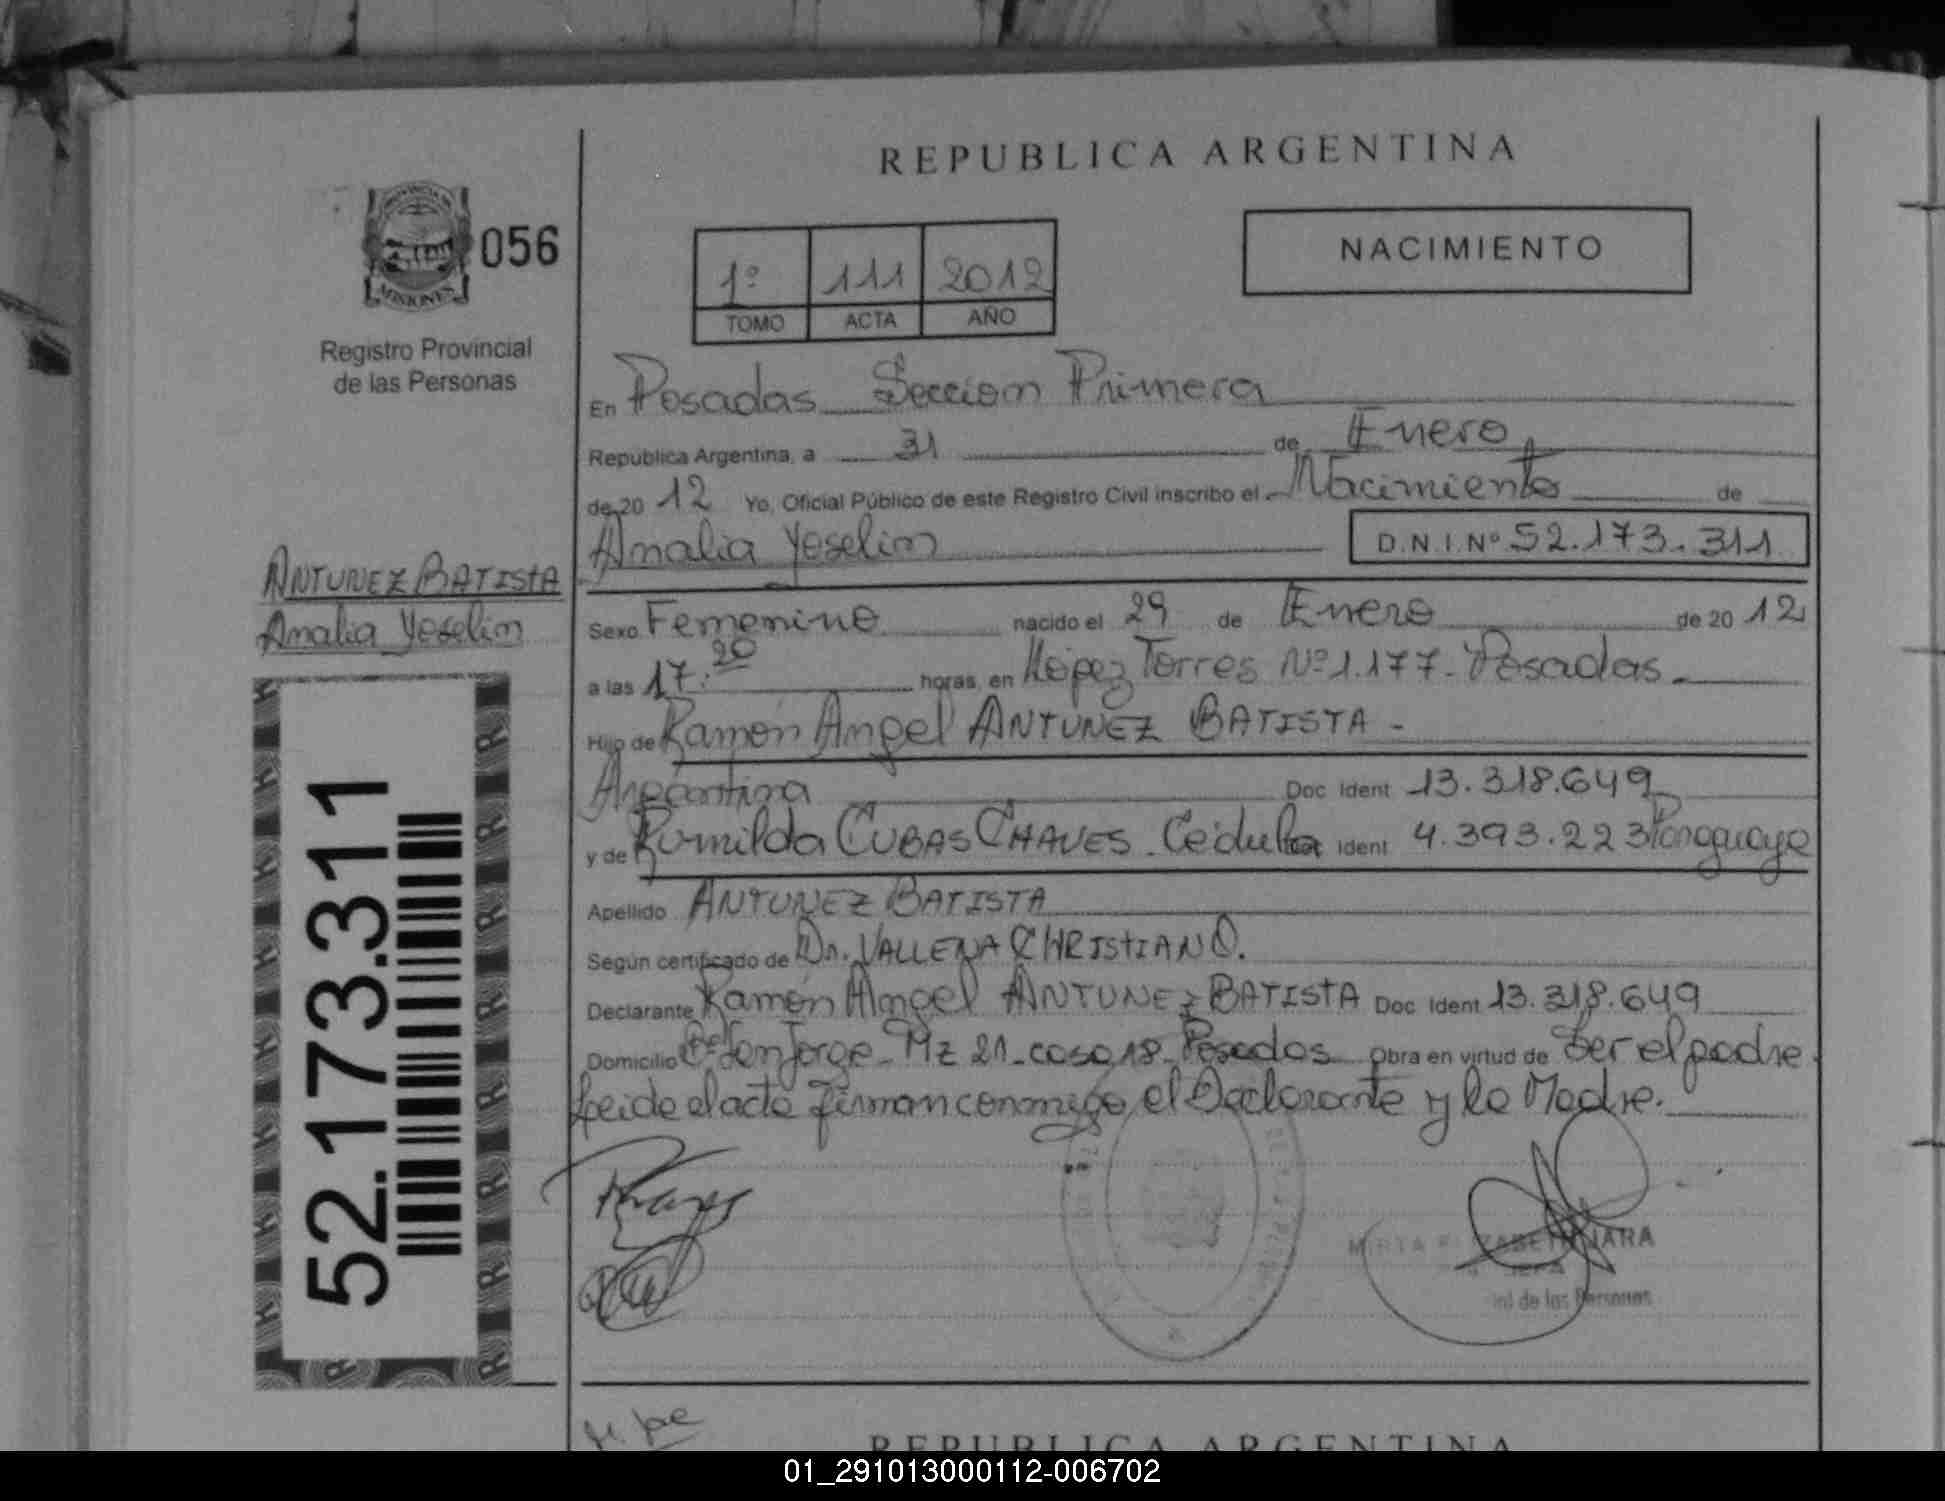 REPUBLICA ARGENTINA
056
MISIONES
Registro Provincial
de las Personas
1º 111 2012
TOMO ACTA AÑO
NACIMIENTO
En Posadas Seccion Primera
Republica Argentina, a 31 de Enero
de 20 12 Yo, Oficial Público de este Registro Civil inscribo el Nacimiento de
Amalia Yoselin
D.N.I.Nº 52.173.311
ANTUNEZ BATISTA
Amalia Yoselin
52.173.311
Sexo Femenino nacido el 29 de Enero de 20 12
a las 17:20 horas, en López Torres Nº 1.177- Posadas.
Hijo de Ramón Angel ANTUNEZ BATISTA -
Argentina Doc Ident 13.318.649
y de Romilda CUBAS CHAVES. Cédula Ident 4.393.223 Paraguaya
Apellido ANTUNEZ BATISTA
Según certificado de Dr. VALLENA CHRISTIAN O.
Declarante Ramón Angel ANTUNEZ BATISTA Doc Ident 13.318.649
Domicilio Mz 21- casa 18- Posadas Obra en virtud de Ser el padre.
Leida el acta firman conmigo el Declarante y la Madre.
MIRTA ELIZABETH JARA
JEFA
de las Personas
REPUBLICA ARGENTINA
01_291013000112-006702